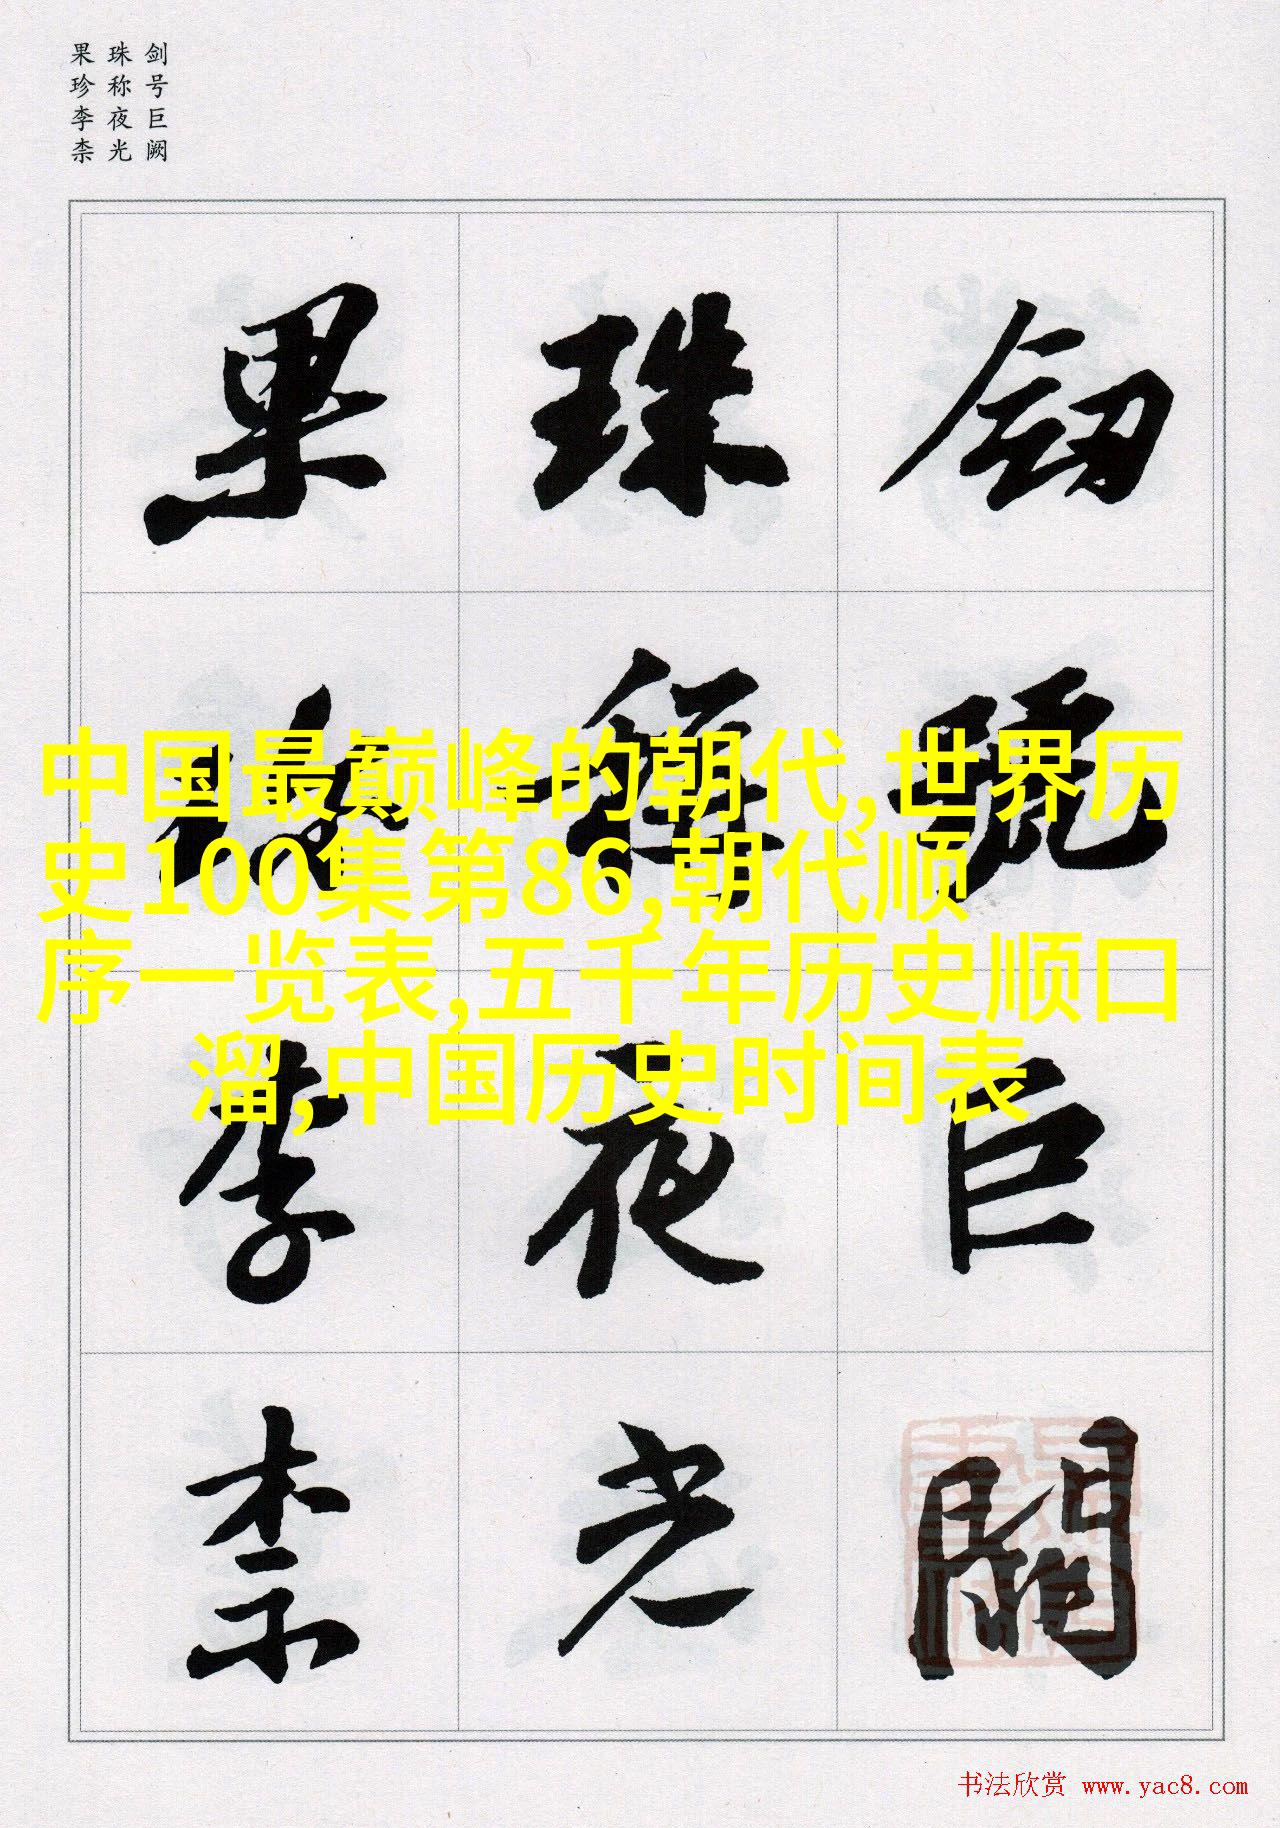 剑号巨阙
珠称夜光
果珍李柰
釼 珠 果
號 稱 珍
巨 夜 李
闕 光 柰
中国最巅峰的朝代,世界历
史100集第86,朝代顺
序一览表,五千年历史顺口
溜,中国历史时间表
书法欣赏 www.yac8.com